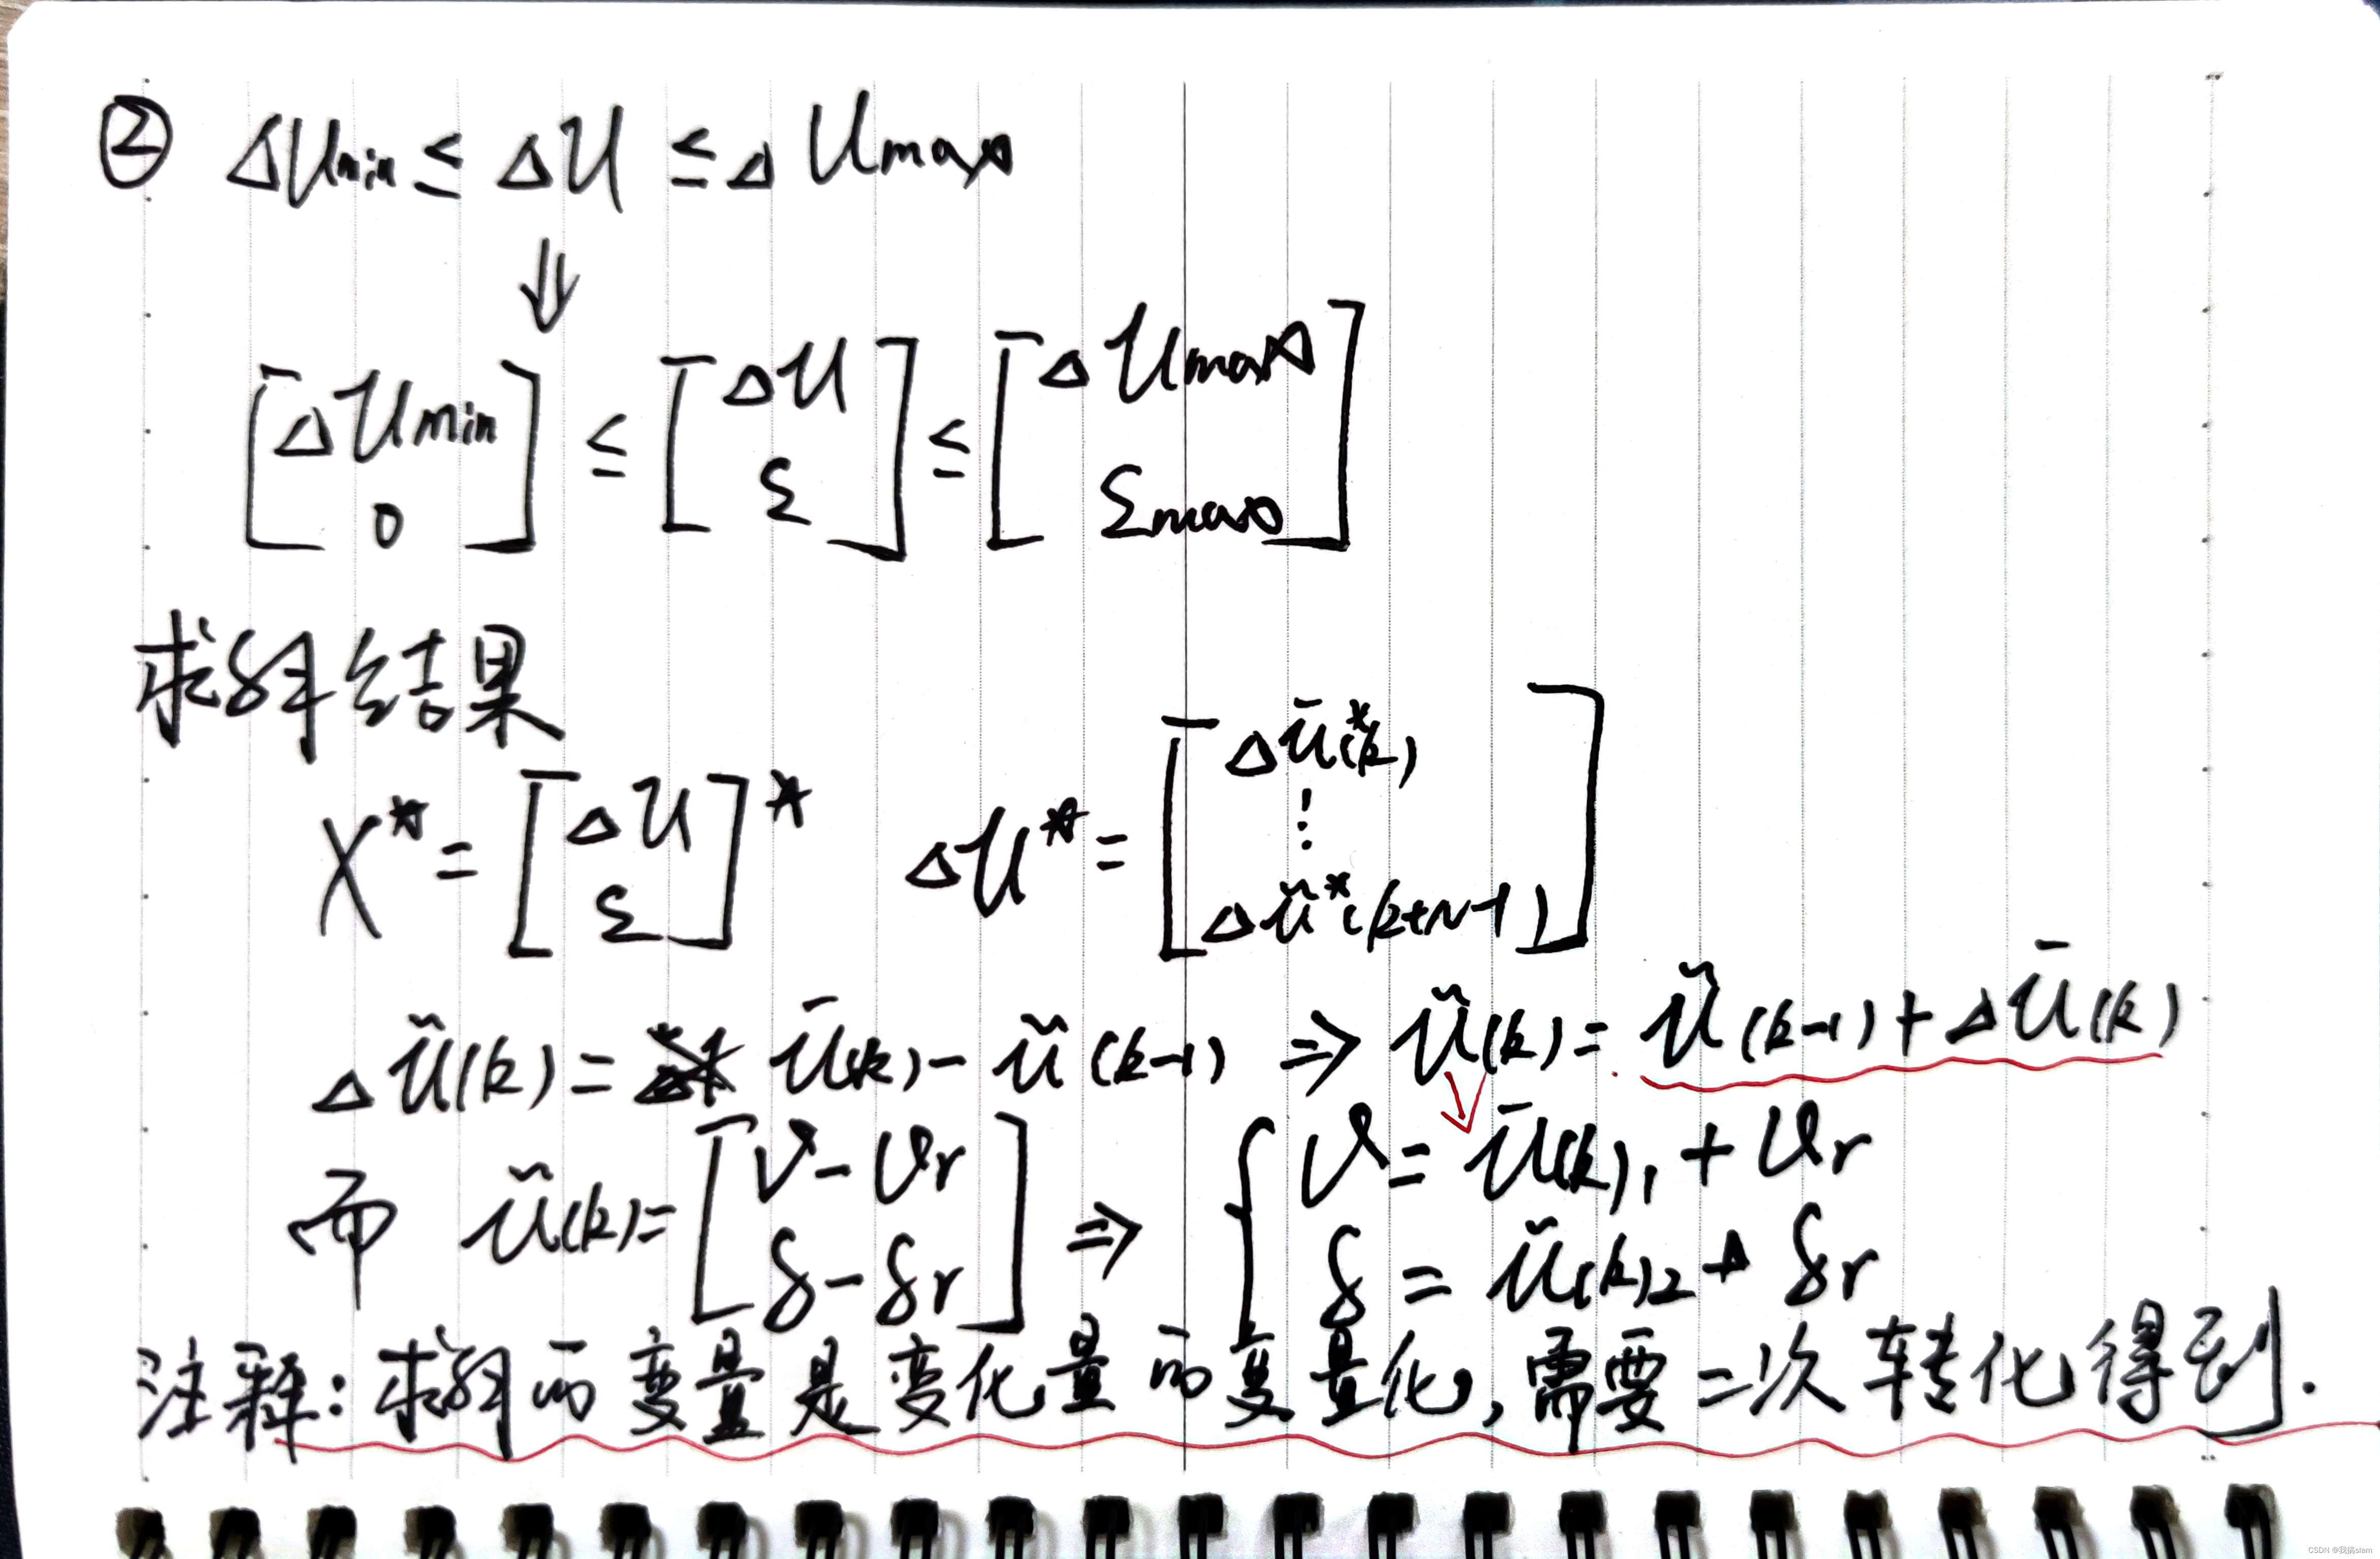 ② ΔUmin ≤ ΔU ≤ ΔUmax
⇓
[ΔUmin 0] ≤ [ΔU ε] ≤ [ΔUmax εmax]
求解结果
X* = [ΔU ε]* ΔU* = [Δū*(k) ⋮ Δũ*(k+N-1)]
Δũ(k) = ū(k) - ũ(k-1) ⇒ ũ(k) = ũ(k-1) + Δū(k)
而 ũ(k) = [v - vr δ - δr] ⇒ { v = ū(k)₁ + vr δ = ũ(k)₂ + δr
注释: 求解的变量是变化量的变量化, 需要二次转化得到.
CSDN @我搞slam